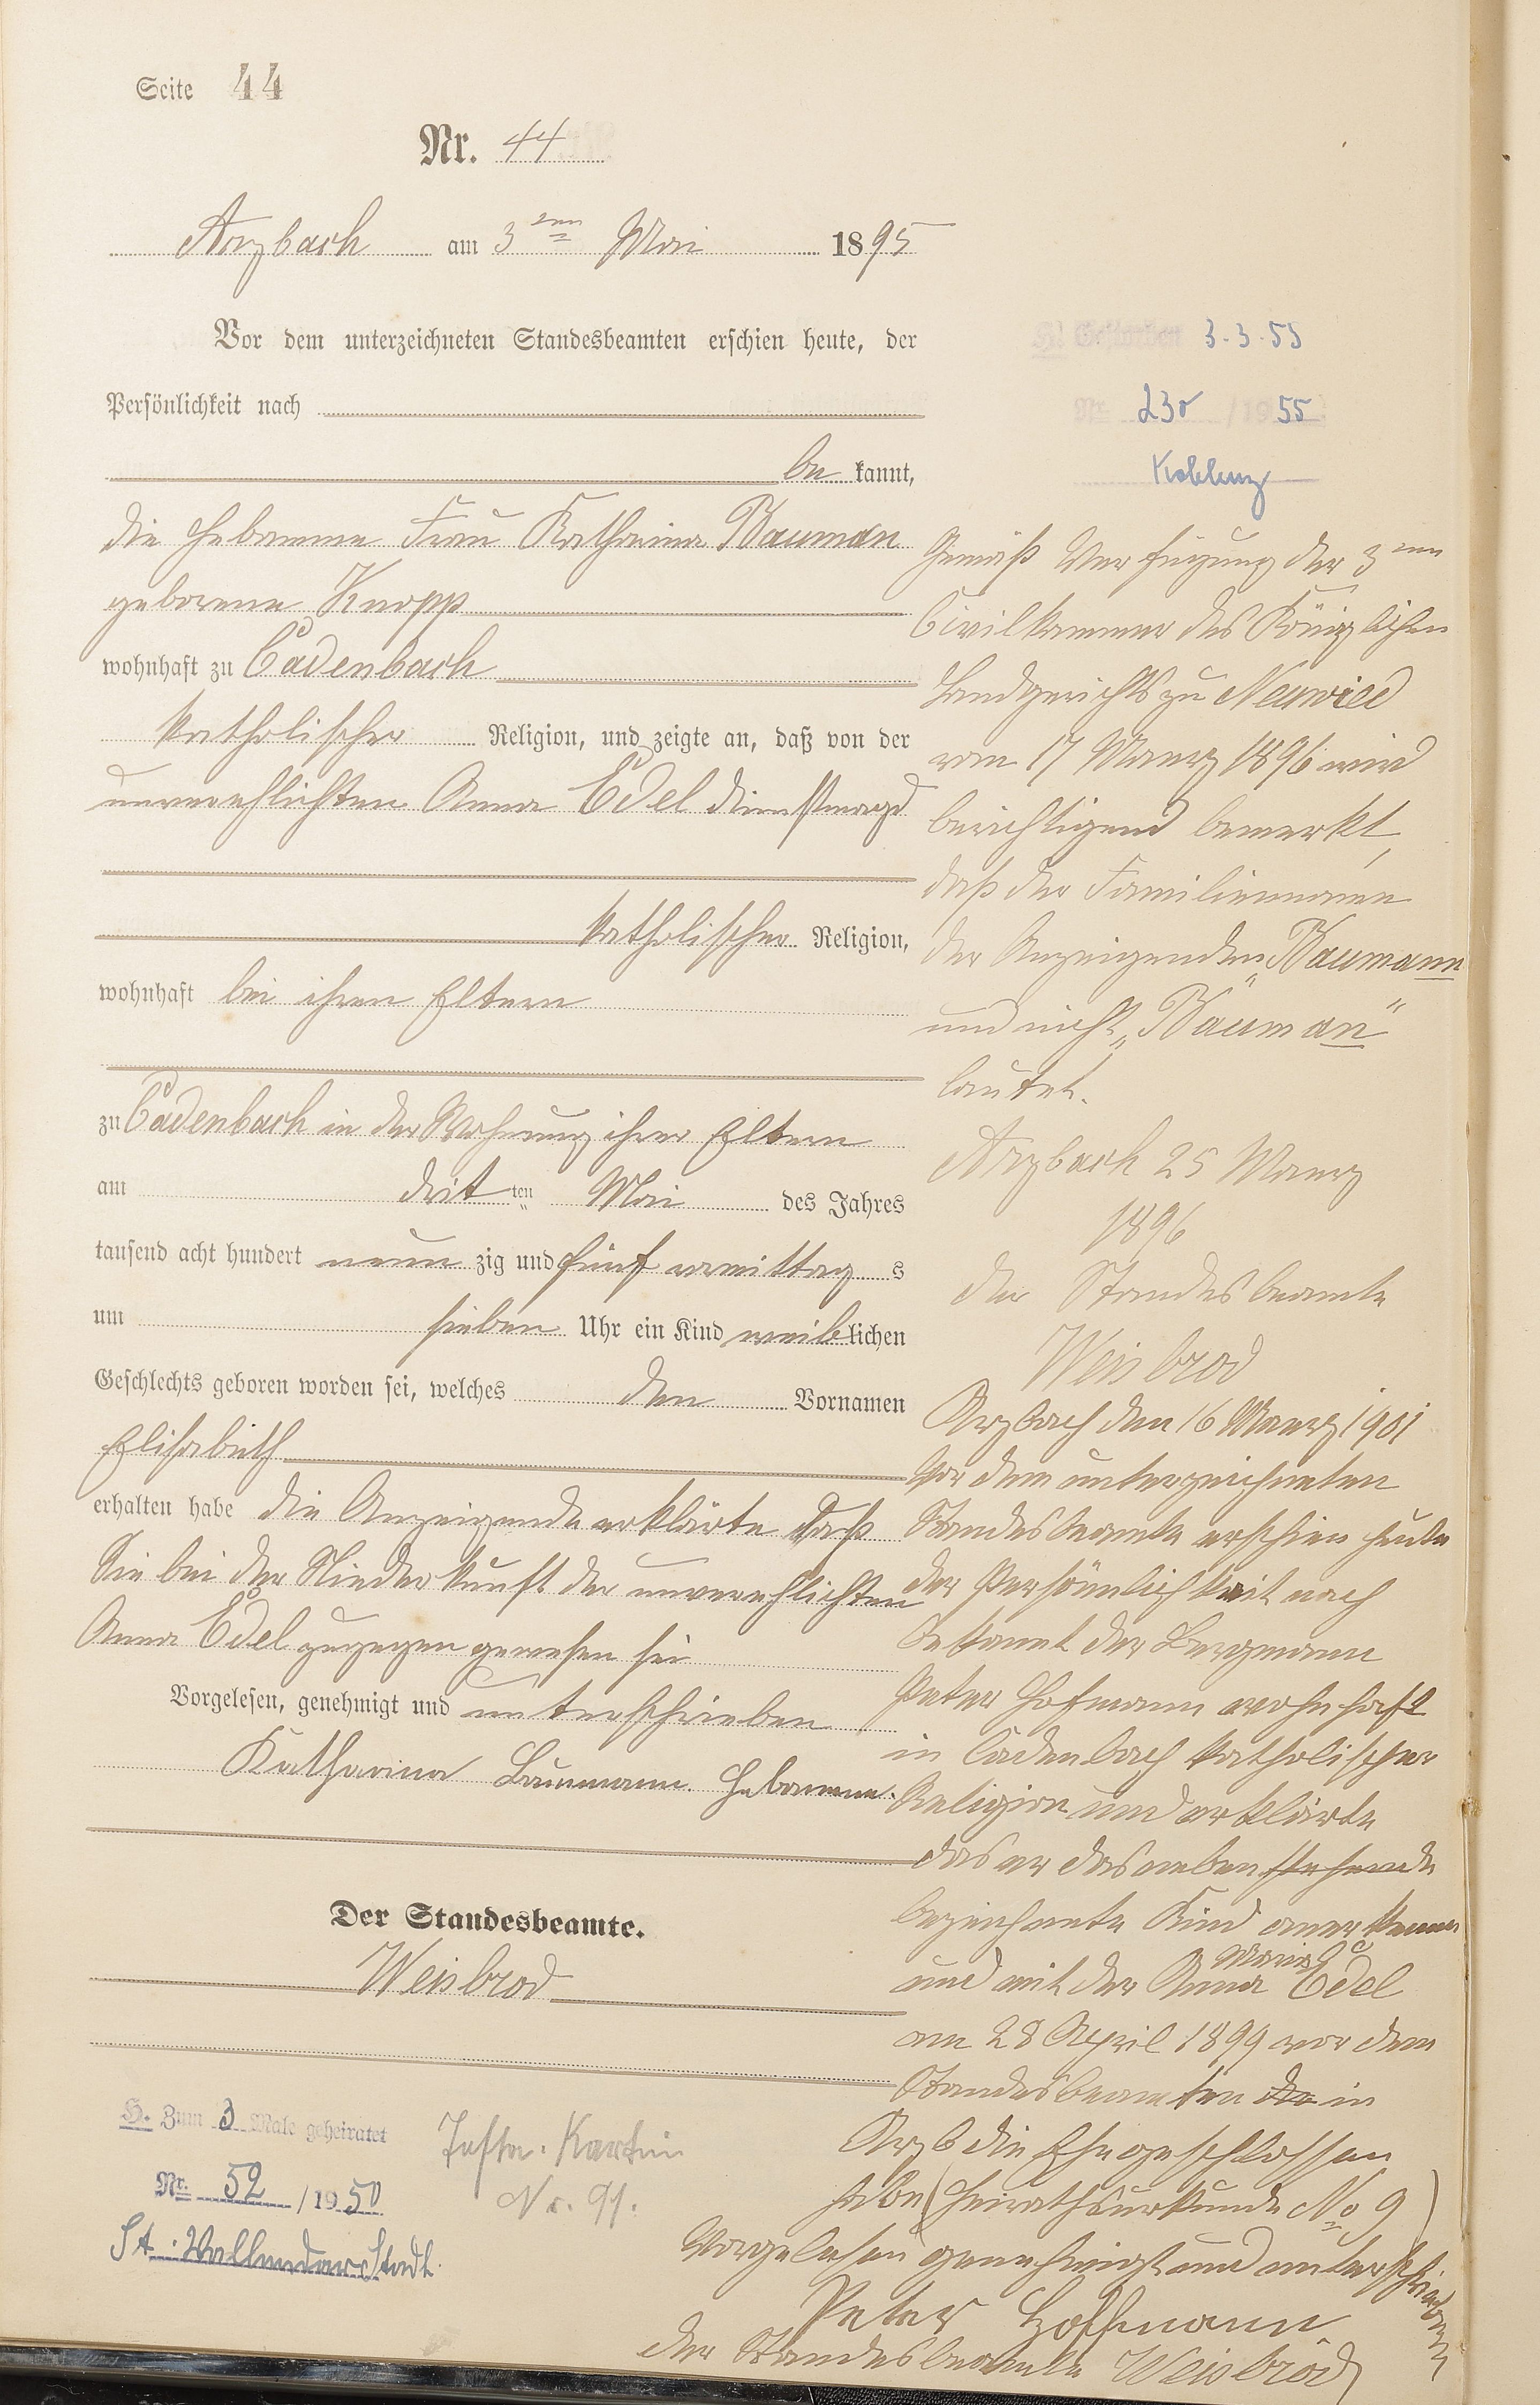 Seite 44
Nr. 44
Arzbach am 3ten Mai 1895
Vor dem unterzeichneten Standesbeamten erschien heute, der
Persönlichkeit nach
be kannt,
die Hebamme Frau Katharina Bauman
geborene Knopp
wohnhaft zu Cadenbach
katholischer Religion, und zeigte an, daß von der
unverehlichten Anna Edel Dienstmagd
katholischer Religion,
wohnhaft bei ihren Eltern
zu Cadenbach in der Wohnung ihrer Eltern
am drit ten Mai des Jahres
tausend acht hundert neun zig und fünf vormittag s
um sieben Uhr ein Kind weiblichen
Geschlechts geboren worden sei, welches den Vornamen
Elisabeth
erhalten habe die Anzeigende erklärte daß
Sie bei der Niederkunft der unverehlichten
Anna Edel zugegen gewesen sei
Vorgelesen, genehmigt und unterschrieben
Katharina Baumann Hebamme.
Der Standesbeamte.
Weisbrod
H. Zum 3 Male geheiratet
Nr. 52 / 1950
St. Vallendar Stadt.
Nr. 91.
H. Gestorben 3.3.55
Nr. 230 / 1955
Koblenz
Gemäß Verfügung der 3ten
Civilkammer des Königlichen
Landgerichts zu Neuwied
vom 17 Maerz 1896 wird
berichtigend bemerkt,
daß der Familienname
der Anzeigenden „Baumann
und nicht „Bauman“
lautet.
Arzbach 25 Maerz
1896
Der Standesbeamte
Weisbrod
Arzbach den 16 Maerz 1901
Vor dem unterzeichneten
Standesbeamte erschien heute
der Persönlichkeit nach
bekannt der Bergmann
Peter Hofmann wohnhaft
in Cadenbach katholischer
Religion und erklärte
das er das neben stehende
bezeichnete Kind anerkenne
und mit der Anna Maria Edel
am 28 April 1899 vor dem
Standesbeamten in
Arzb die Ehe geschlossen
habe (Heirathsurkunde No 9)
Vorgelesen genehmigt und unterschrieben
Peter Hoffmann
Der Standesbeamte Weisbrod